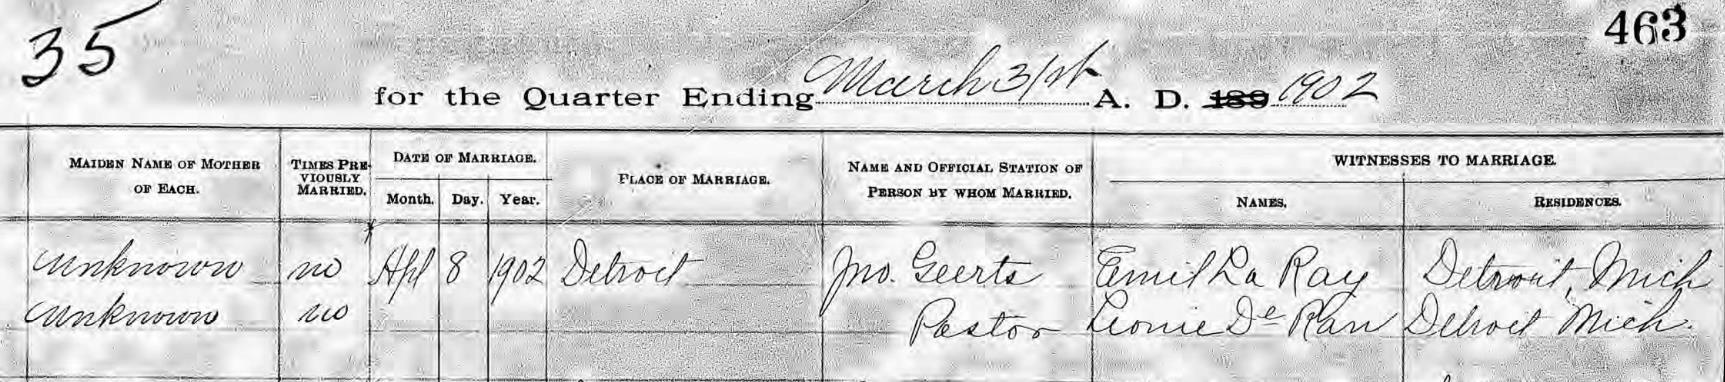 35
463
for the Quarter Ending March 31st A. D. 189 1902
MAIDEN NAME OF MOTHER OF EACH.
TIMES PREVIOUSLY MARRIED.
DATE OF MARRIAGE.
Month. Day. Year.
PLACE OF MARRIAGE.
NAME AND OFFICIAL STATION OF PERSON BY WHOM MARRIED.
WITNESSES TO MARRIAGE.
NAMES. RESIDENCES.
Unknown no Apl 8 1902 Detroit Jno. Geerts Emil La Ray Detroit, Mich
Unknown no Pastor Leonie De Rau Detroit Mich.